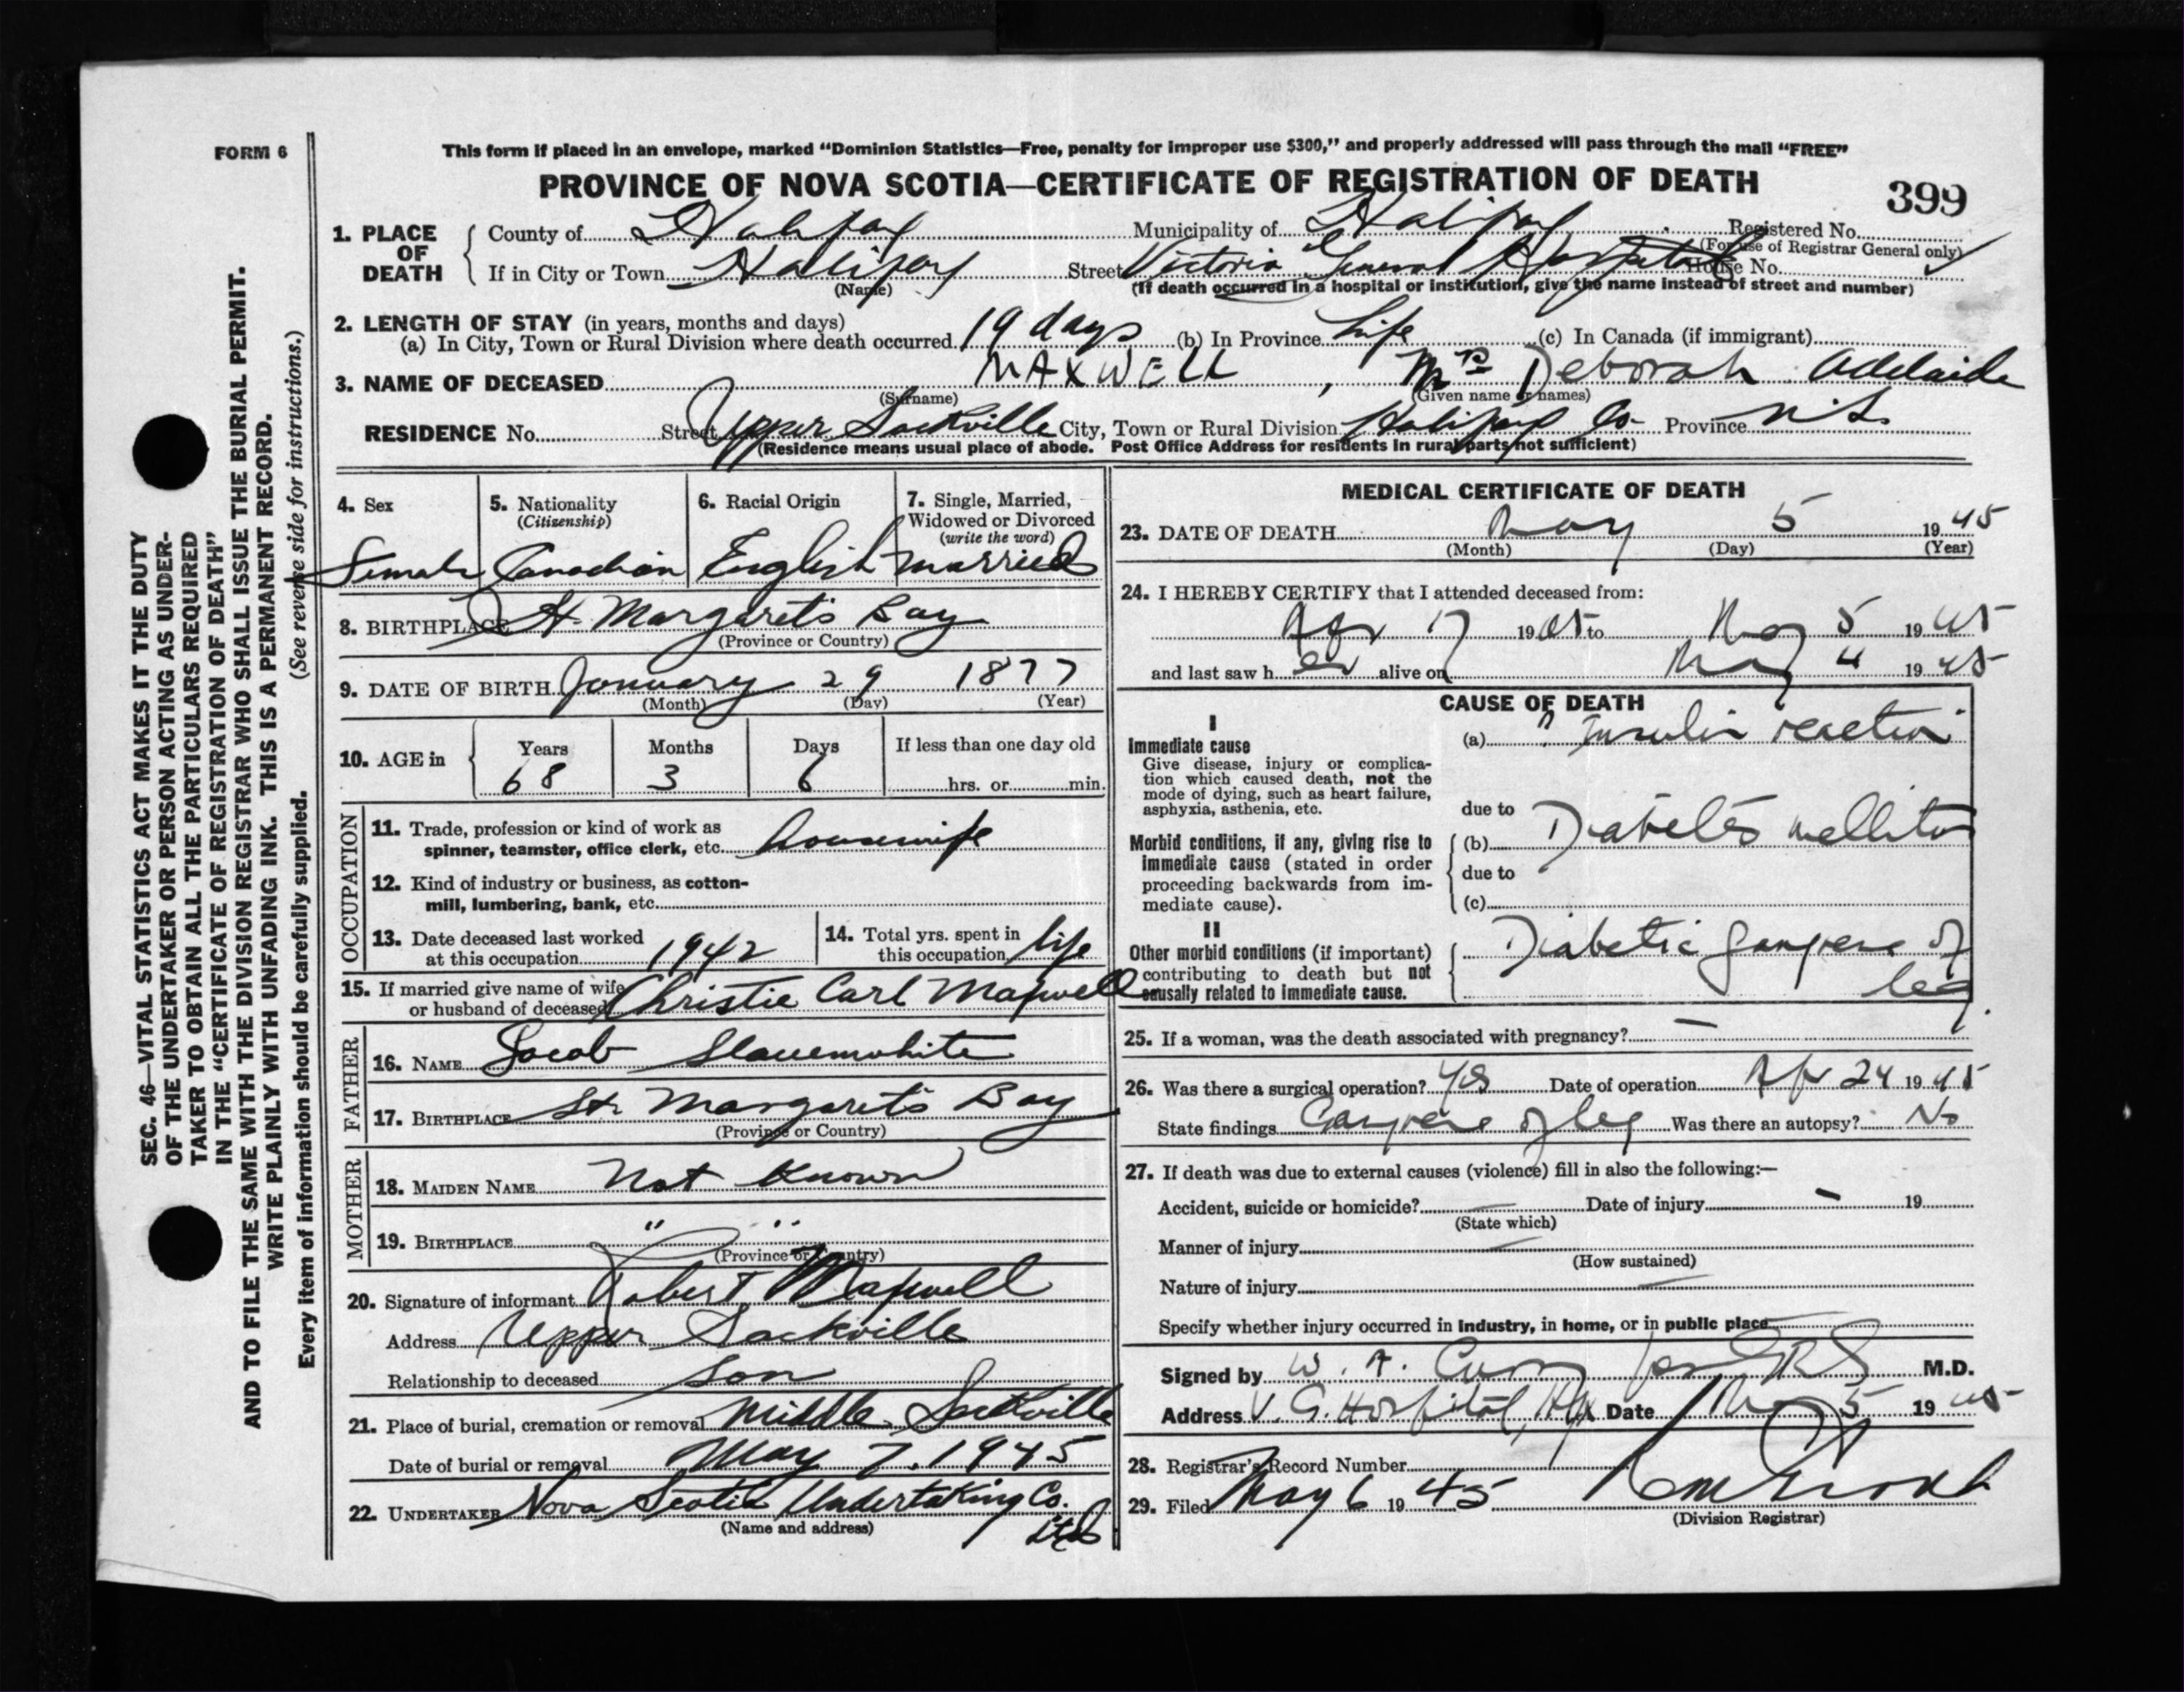 FORM 6
This form if placed in an envelope, marked "Dominion Statistics—Free, penalty for improper use $300," and properly addressed will pass through the mail "FREE"
PROVINCE OF NOVA SCOTIA—CERTIFICATE OF REGISTRATION OF DEATH
399
1. PLACE OF DEATH
County of Halifax Municipality of Halifax Registered No.
(For use of Registrar General only)
If in City or Town Halifax Street Victoria General Hospital House No.
(Name) (If death occurred in a hospital or institution, give the name instead of street and number)
2. LENGTH OF STAY (in years, months and days)
(a) In City, Town or Rural Division where death occurred 19 days (b) In Province Life (c) In Canada (if immigrant)
3. NAME OF DECEASED MAXWELL, Mrs Deborah Adelaide
(Surname) (Given name or names)
RESIDENCE No. Street Upper Sackville City, Town or Rural Division Halifax Co. Province N.S.
(Residence means usual place of abode. Post Office Address for residents in rural parts not sufficient)
4. Sex
Female
5. Nationality
(Citizenship)
Canadian
6. Racial Origin
English
7. Single, Married,
Widowed or Divorced
(write the word)
Married
8. BIRTHPLACE St. Margaret's Bay
(Province or Country)
9. DATE OF BIRTH January 29 1877
(Month) (Day) (Year)
10. AGE in
Years Months Days If less than one day old
68 3 6 hrs. or min.
OCCUPATION
11. Trade, profession or kind of work as
spinner, teamster, office clerk, etc. housewife
12. Kind of industry or business, as cotton-
mill, lumbering, bank, etc.
13. Date deceased last worked
at this occupation 1942
14. Total yrs. spent in
this occupation life
15. If married give name of wife
or husband of deceased Christie Carl Maxwell
FATHER
16. NAME Jacob Slauenwhite
17. BIRTHPLACE St. Margaret's Bay
(Province or Country)
MOTHER
18. MAIDEN NAME Not Known
19. BIRTHPLACE " "
(Province or Country)
20. Signature of informant Robert Maxwell
Address Upper Sackville
Relationship to deceased Son
21. Place of burial, cremation or removal Middle Sackville
Date of burial or removal May 7, 1945
22. UNDERTAKER Nova Scotia Undertaking Co.
(Name and address) Ltd
MEDICAL CERTIFICATE OF DEATH
23. DATE OF DEATH May 5 1945
(Month) (Day) (Year)
24. I HEREBY CERTIFY that I attended deceased from:
Apr 17 1945 to May 5 1945
and last saw her alive on May 4 1945
CAUSE OF DEATH
I
Immediate cause
Give disease, injury or complica-
tion which caused death, not the
mode of dying, such as heart failure,
asphyxia, asthenia, etc.
(a) ? Insulin reaction
due to
Morbid conditions, if any, giving rise to
immediate cause (stated in order
proceeding backwards from im-
mediate cause).
(b) Diabetes mellitus
due to
(c)
II
Other morbid conditions (if important)
contributing to death but not
causally related to immediate cause.
Diabetic gangrene of
leg.
25. If a woman, was the death associated with pregnancy? —
26. Was there a surgical operation? Yes Date of operation Apr 24 1945
State findings Gangrene of leg Was there an autopsy? No
27. If death was due to external causes (violence) fill in also the following:—
Accident, suicide or homicide? — Date of injury — 19
(State which)
Manner of injury —
(How sustained)
Nature of injury —
Specify whether injury occurred in industry, in home, or in public place
Signed by W. A. Curry M.D.
Address V. G. Hospital, Hfx Date May 5 1945
28. Registrar's Record Number
29. Filed May 6 1945
(Division Registrar)
SEC. 46—VITAL STATISTICS ACT MAKES IT THE DUTY
OF THE UNDERTAKER OR PERSON ACTING AS UNDER-
TAKER TO OBTAIN ALL THE PARTICULARS REQUIRED
IN THE "CERTIFICATE OF REGISTRATION OF DEATH"
AND TO FILE THE SAME WITH THE DIVISION REGISTRAR WHO SHALL ISSUE THE BURIAL PERMIT.
WRITE PLAINLY WITH UNFADING INK. THIS IS A PERMANENT RECORD.
Every item of information should be carefully supplied. (See reverse side for instructions.)